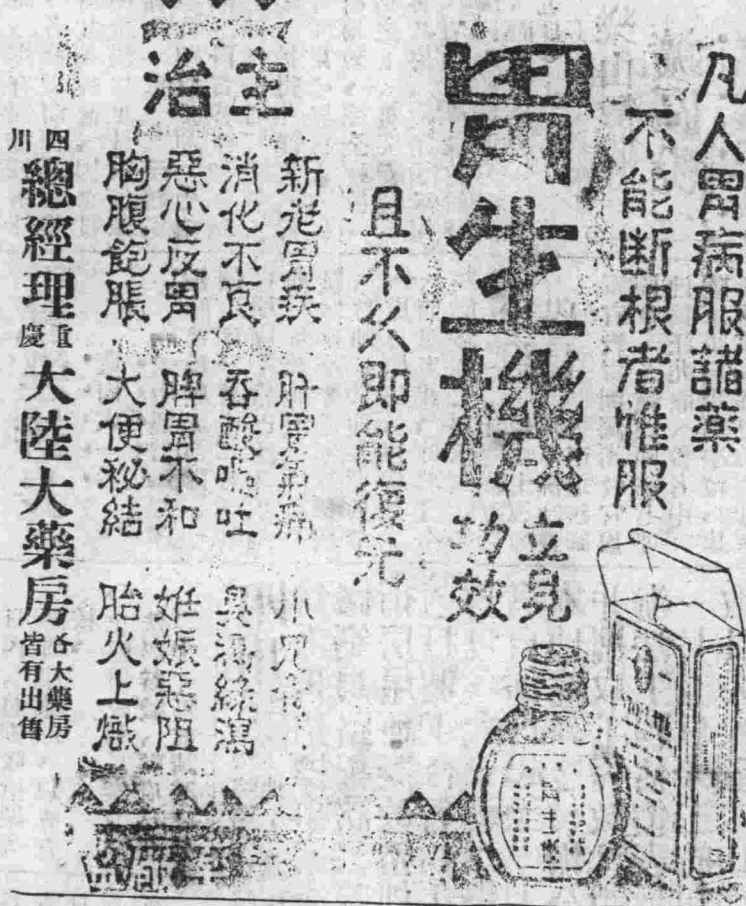 凡人胃病服諸藥
不能断根者惟服
胃生機
立見
功效
且不久即能復元
主治
新老胃疾
肝胃氣痛
小兒
消化不良
吞酸嘔吐
臭瀉綠瀉
惡心反胃
脾胃不和
妊娠惡阻
胸腹飽脹
大便秘結
胎火上熾
四川
總經理
重慶
大陸大藥房
各大藥房
皆有出售